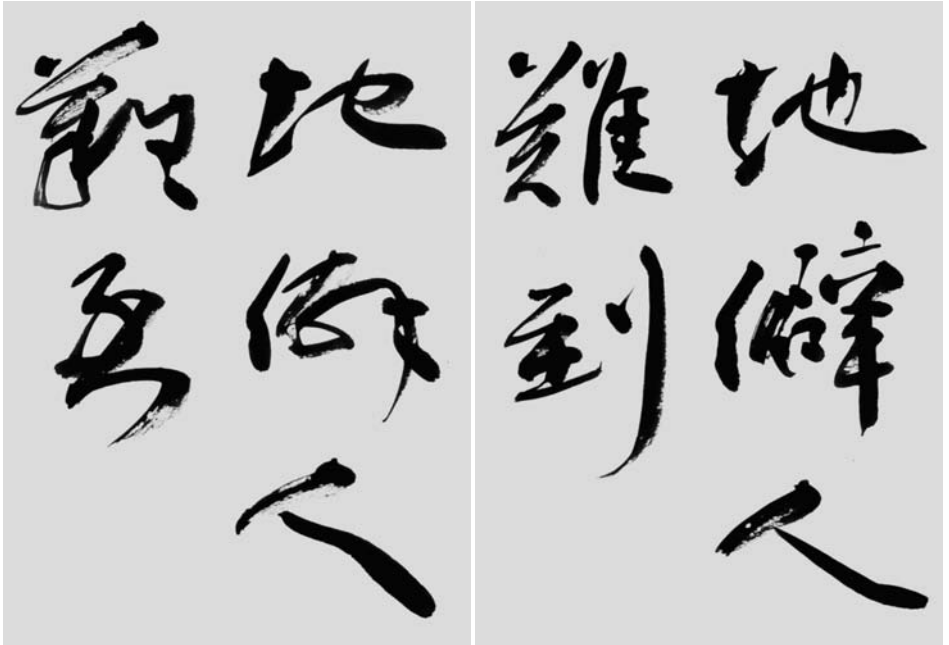 地僻人
難到
地僻人
難到